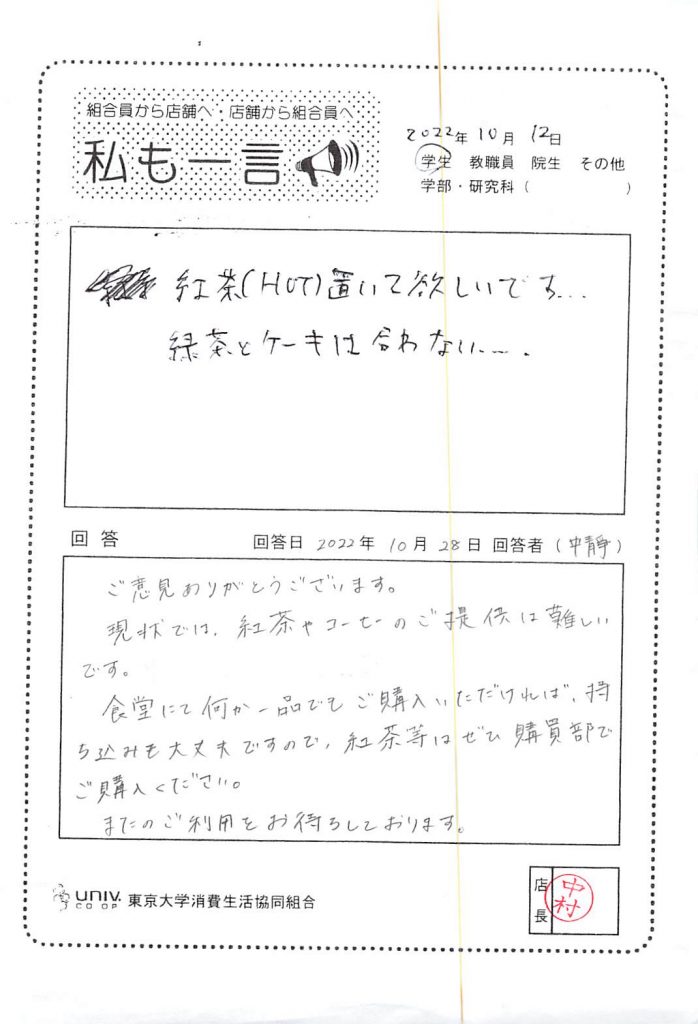 組合員から店舗へ・店舗から組合員へ
私も一言
2022年10月12日
学生 教職員 院生 その他
学部・研究科( )
紅茶(HOT)置いて欲しいです...
緑茶とケーキは合わない....
回答 回答日 2022年 10月 28日 回答者(中靜)
ご意見ありがとうございます。
現状では、紅茶やコーヒーのご提供は難しい
です。
食堂にて何か一品でもご購入いただければ、持
ち込みも大丈夫ですので、紅茶等はぜひ購買部で
ご購入ください。
またのご利用をお待ちしております。
univ.
CO・OP
東京大学消費生活協同組合
店長
中村